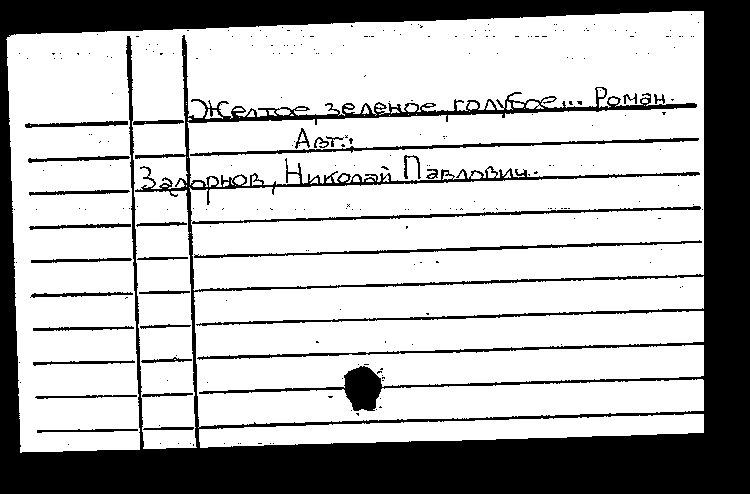 Желтое, зеленое, голубое... Роман.
Авт.:
Задорнов, Николай Павлович.